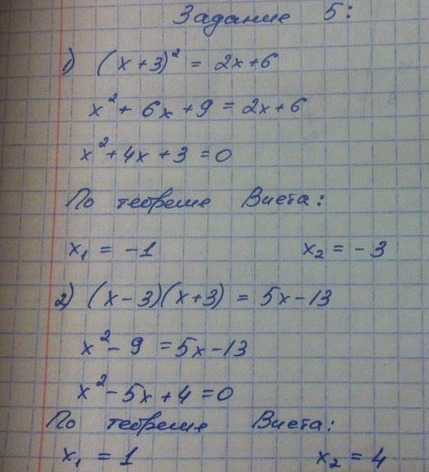 Задание 5:
1) (x+3)² = 2x+6
x² + 6x + 9 = 2x+6
x²+4x+3=0
По теореме Виета:
x₁ = -1 x₂ = -3
2) (x-3)(x+3) = 5x-13
x² - 9 = 5x-13
x² - 5x + 4 = 0
По теореме Виета:
x₁ = 1 x₂ = 4